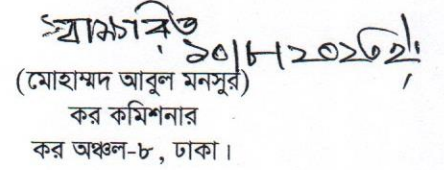 স্বাক্ষরিত
১০/৮/২০২৩ইং
(মোহাম্মদ আবুল মনসুর)
কর কমিশনার
কর অঞ্চল-৮, ঢাকা।